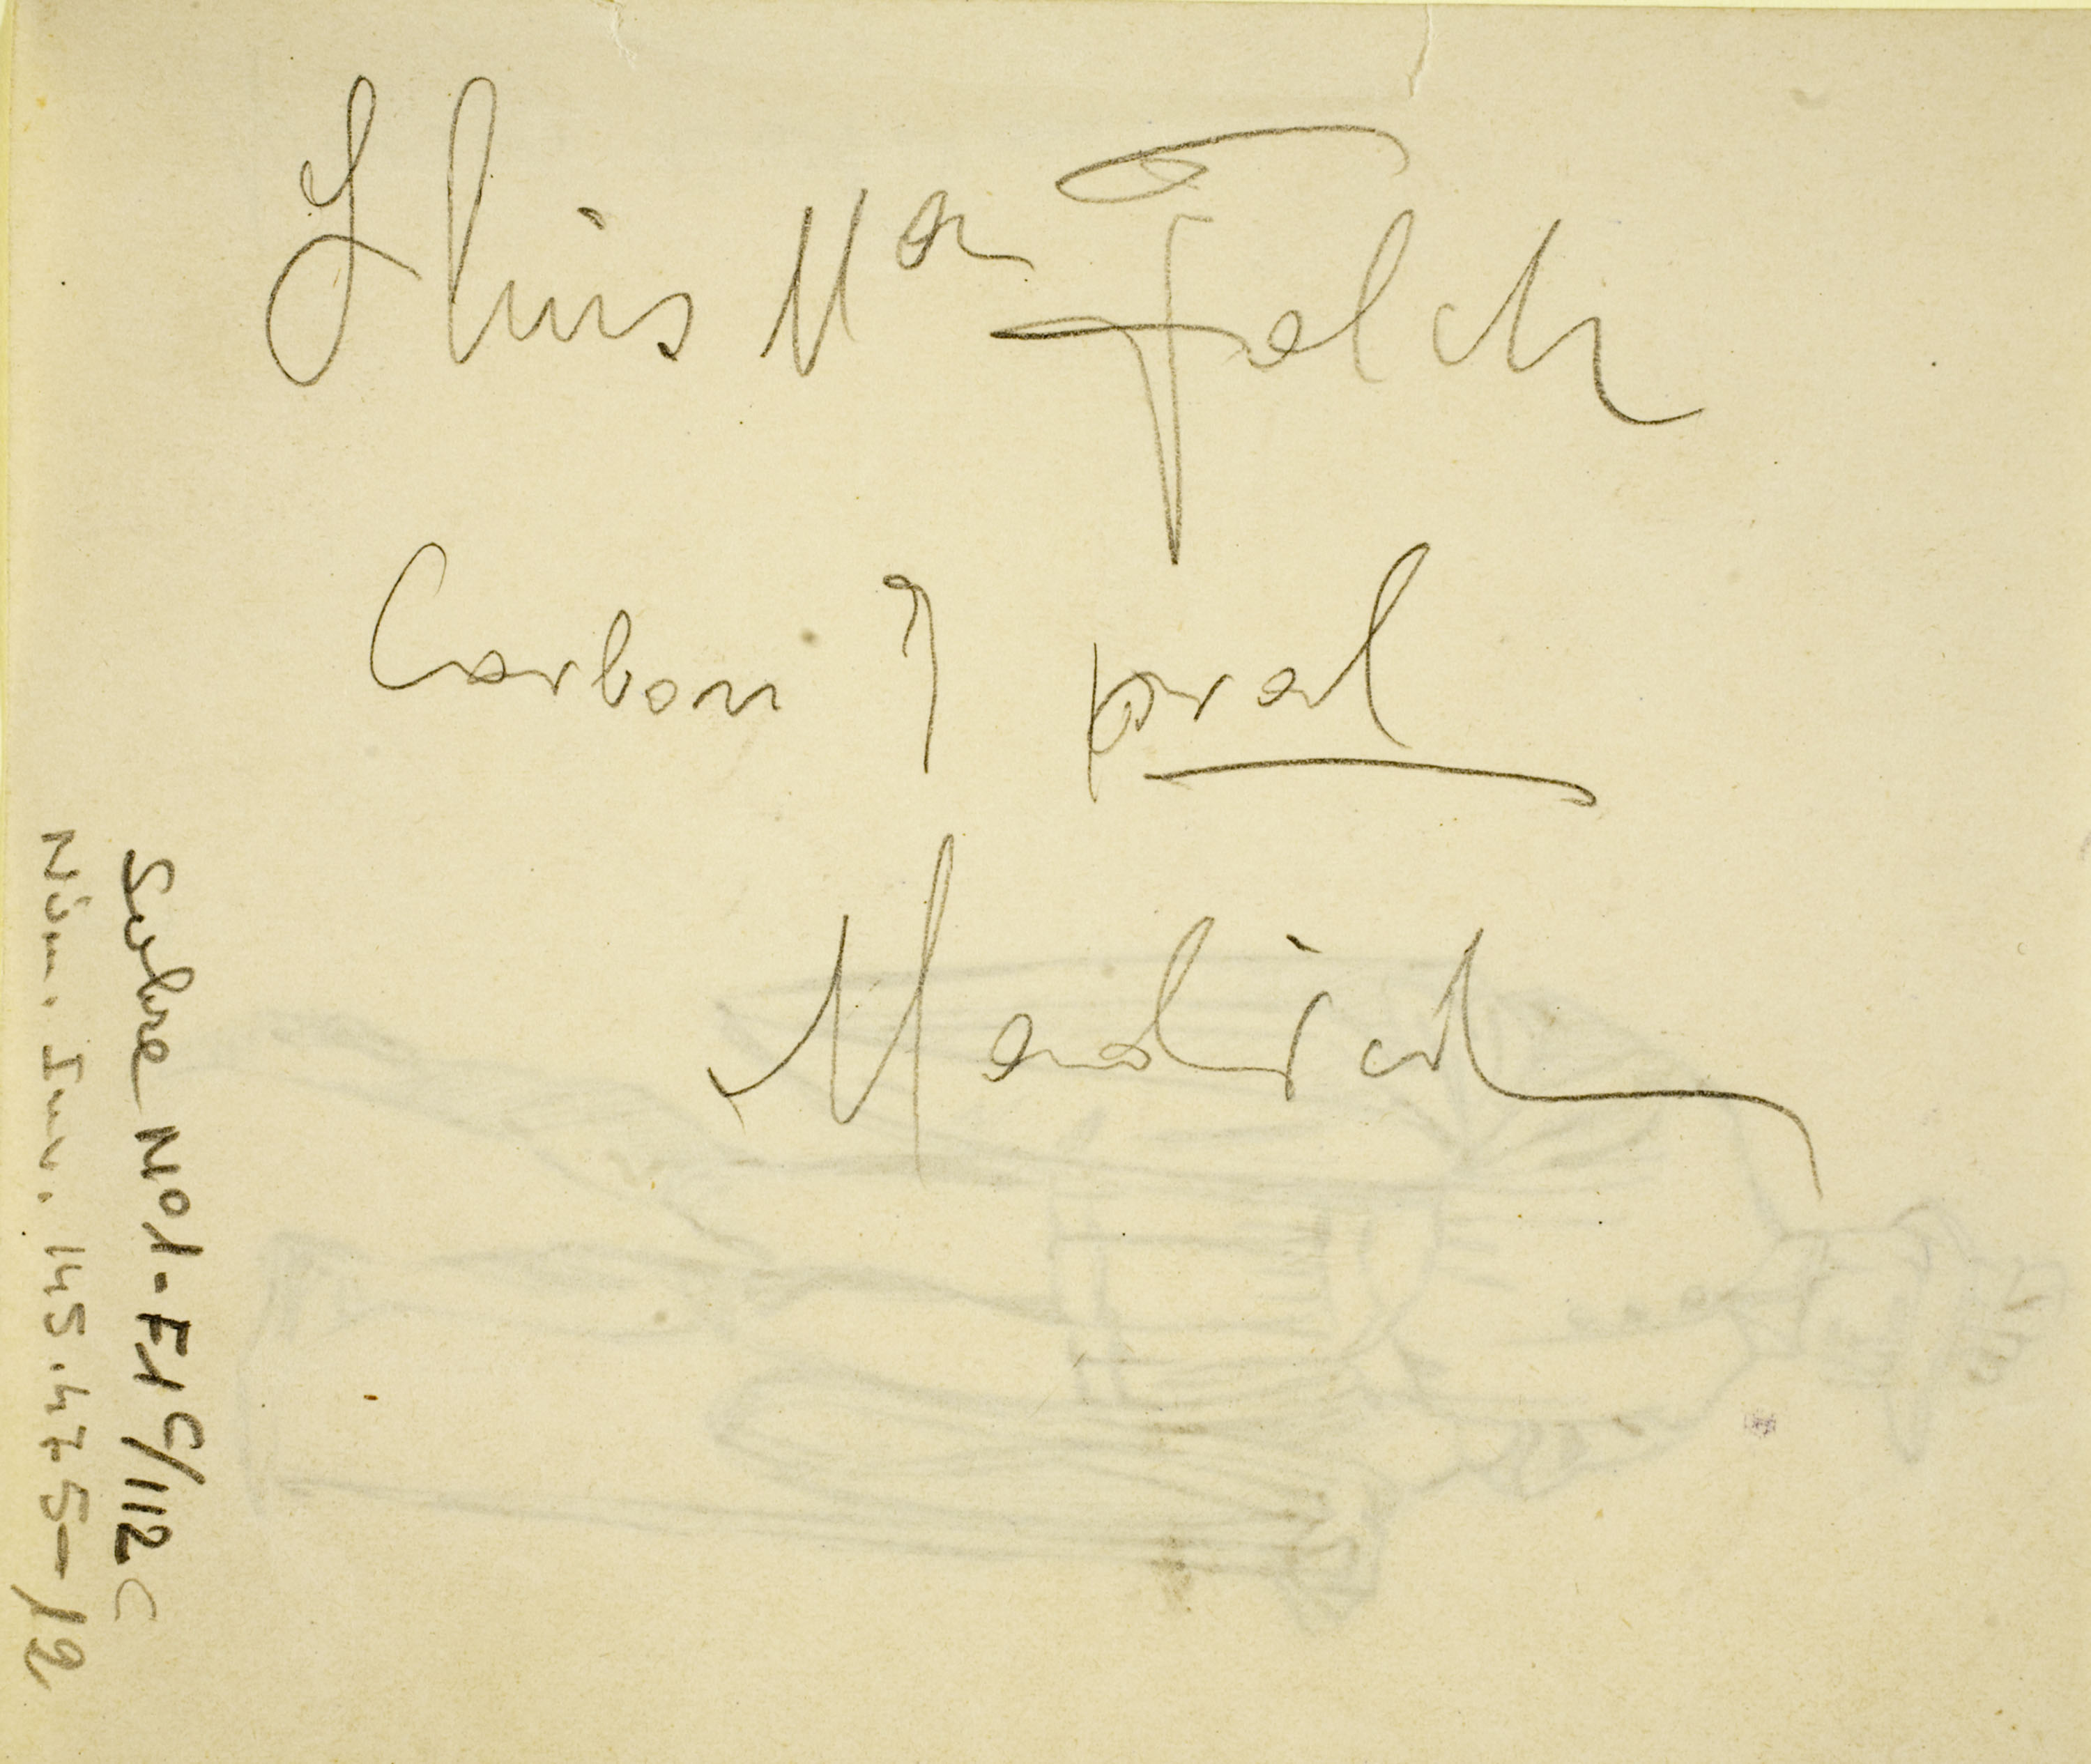 Lluis Mª Folch
Carbon 7 pral
Madrid
Sobre N01-F1 C/112 C
Núm. Inv. 145.475-12